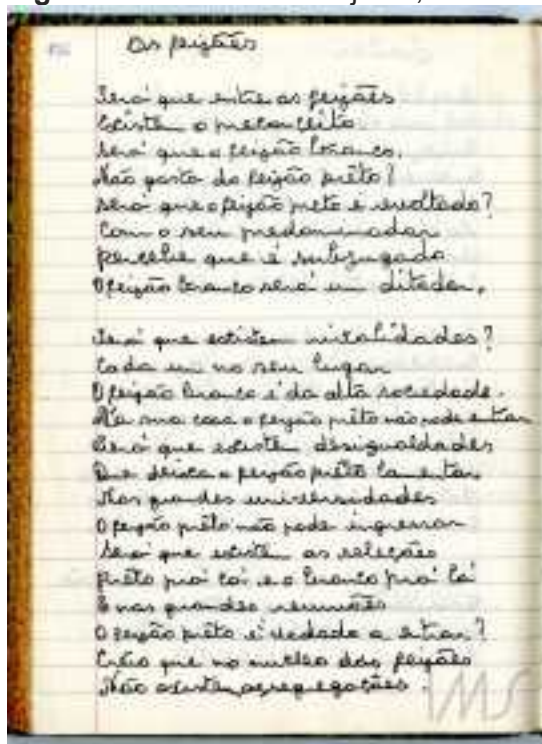 Os feijões
Será que entre as feijões
Existem o preconceito
Será que o feijão branco,
Não gosta do feijão prêto?
Será que o feijão preto é revoltado?
Com o seu predominador
Percebe que é subjugado
O feijão branco será um ditador.
Será que existem rivalidades?
Cada um no seu lugar
O feijão branco é da alta sociedade.
Na sua casa o feijão prêto não pode entrar
Será que existem desigualdades
Que deixa o feijão prêto lamentar
Nas grandes universidades
O feijão prêto não pode ingressar
Será que existem as seleções
Prêto prá cá, e o branco prá lá
E nas grandes reuniões
O feijão prêto é vedado a entrar?
Creio que no nucleo dos feijões
Não existem,
IMS